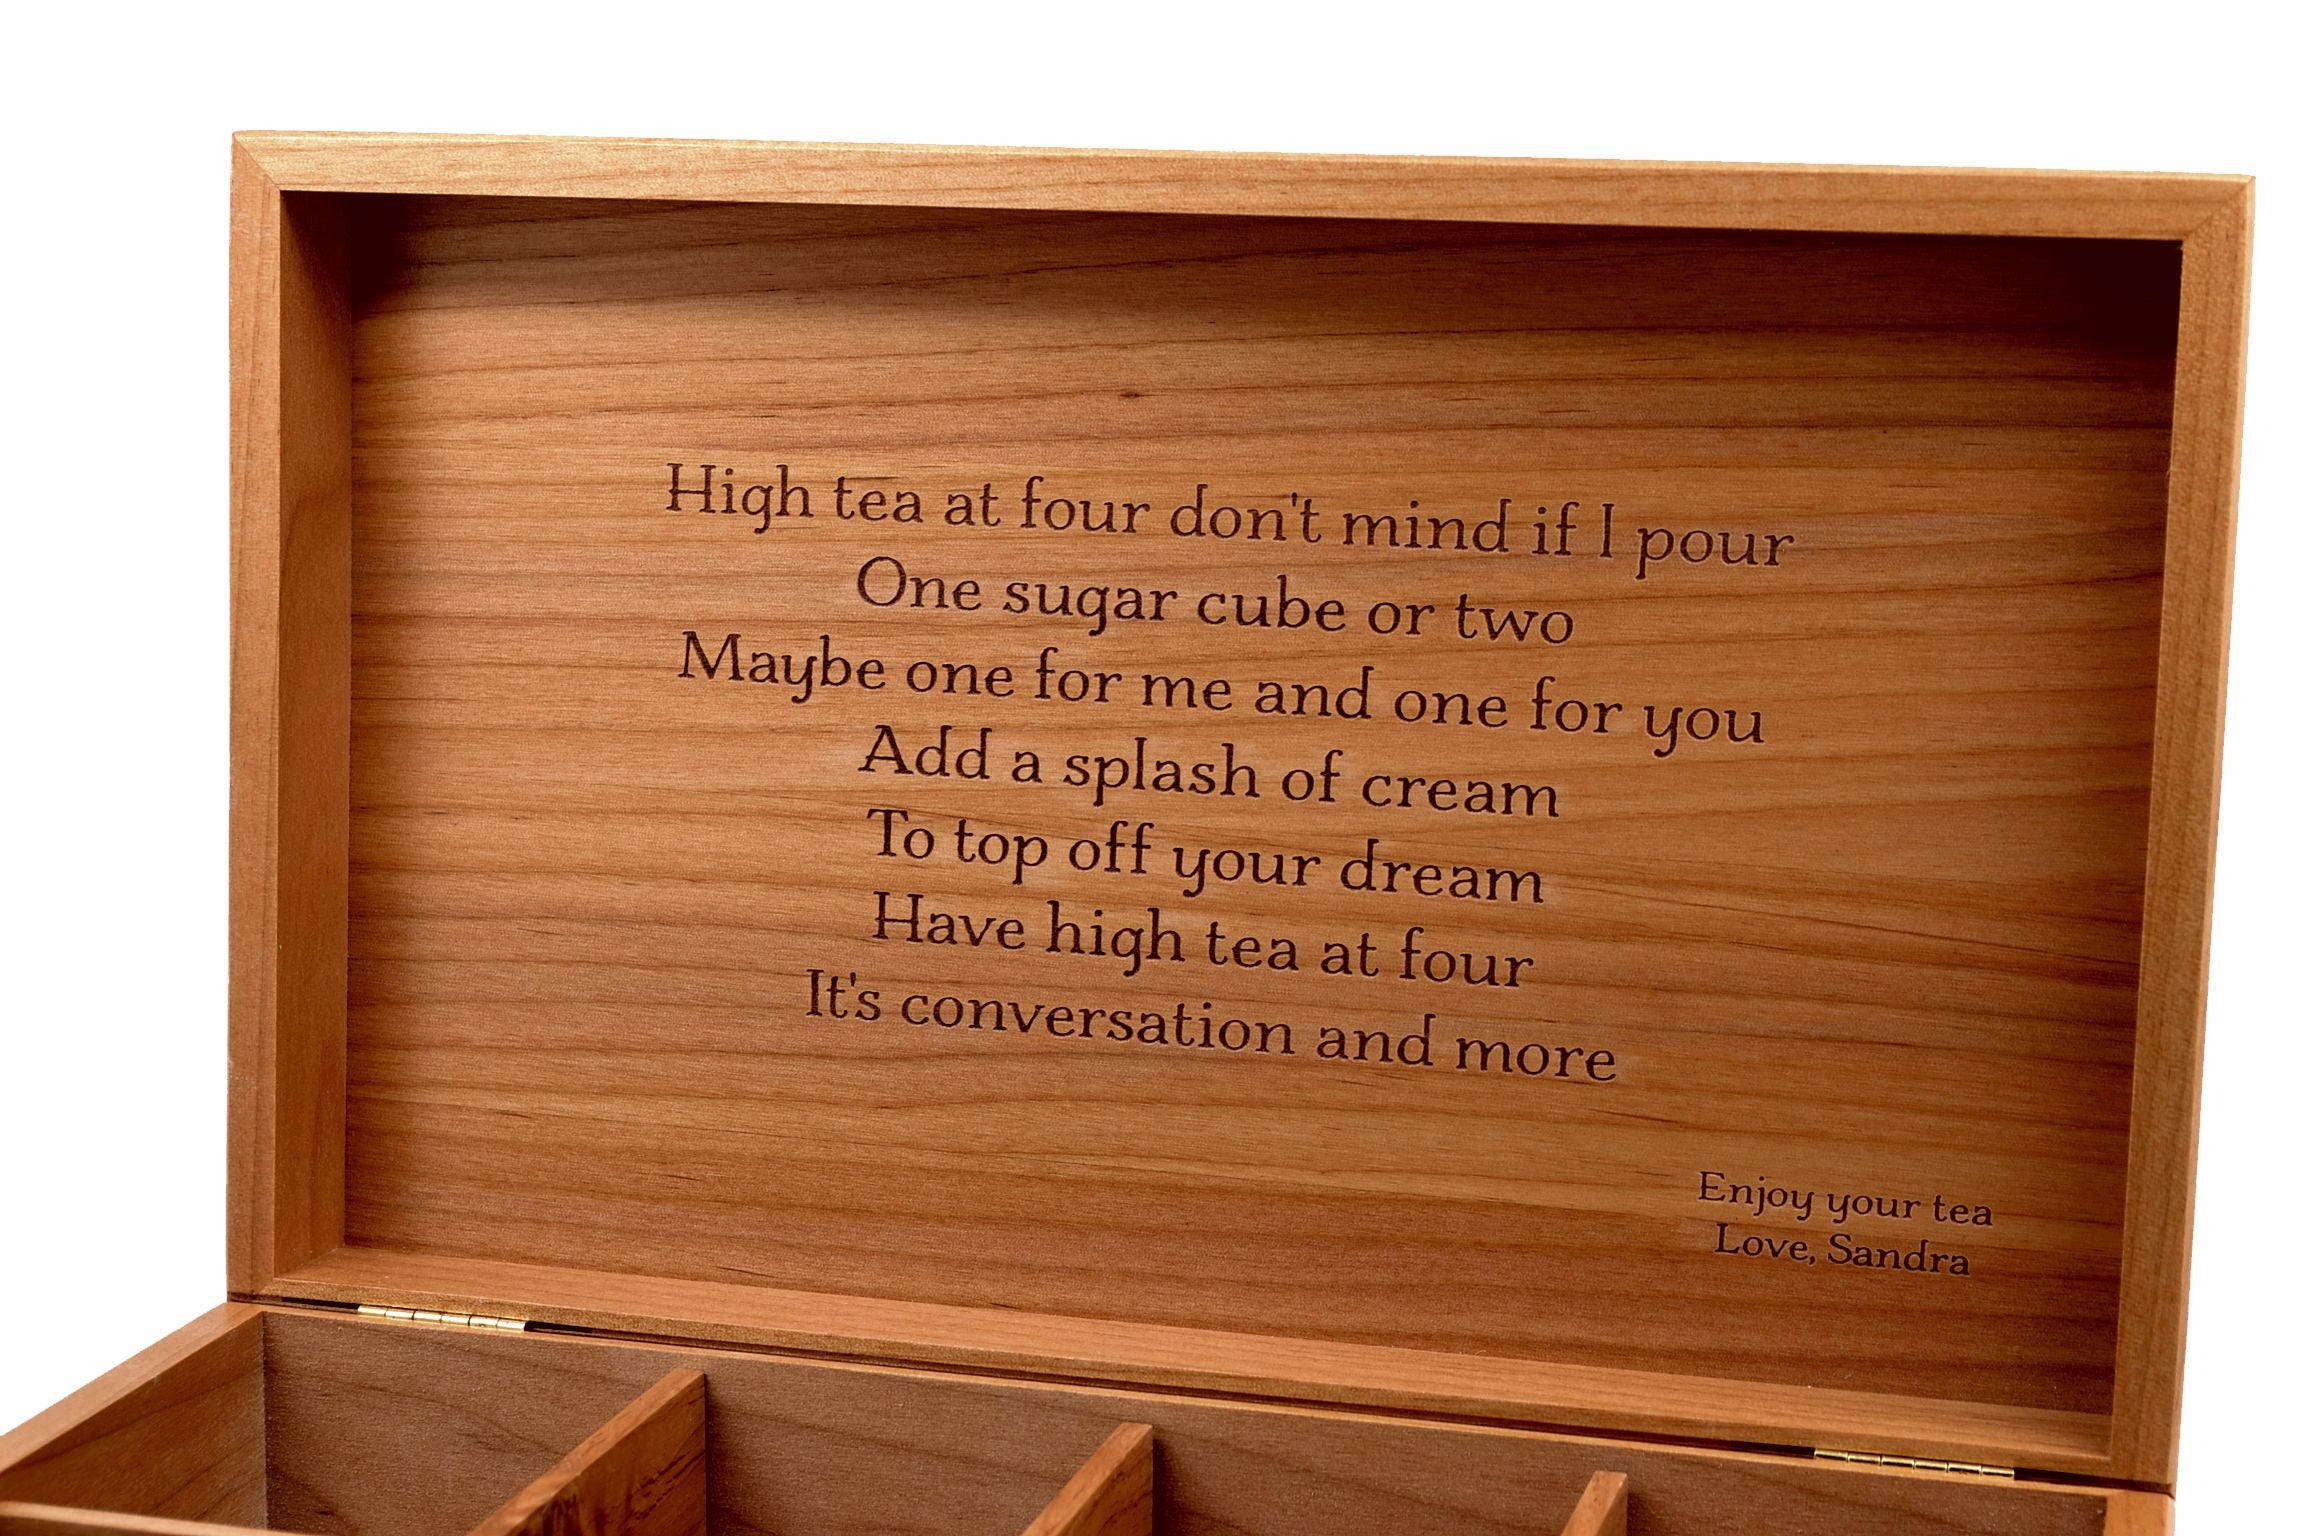 High tea at four don't mind if I pour
One sugar cube or two
Maybe one for me and one for you
Add a splash of cream
To top off your dream
Have high tea at four
It's conversation and more
Enjoy your tea
Love, Sandra